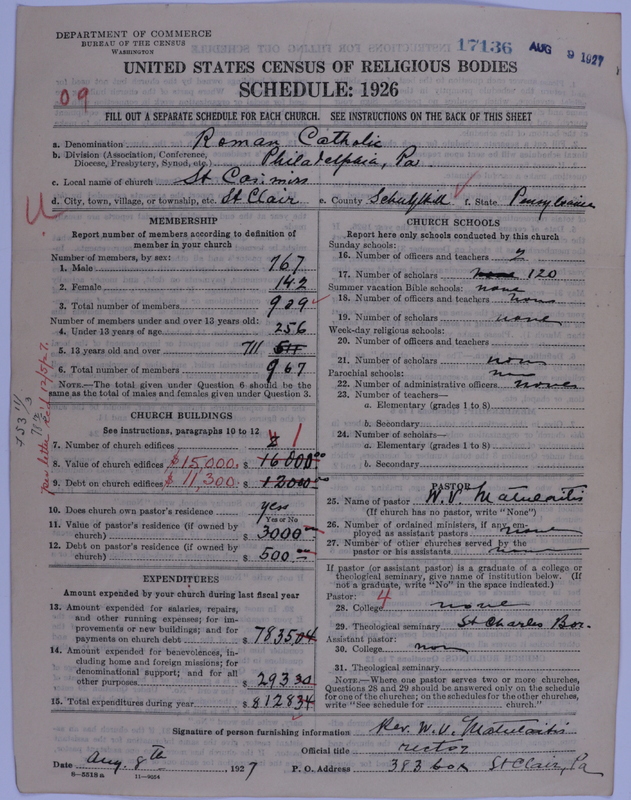 DEPARTMENT OF COMMERCE
BUREAU OF THE CENSUS
WASHINGTON
17136 AUG 9 1927
UNITED STATES CENSUS OF RELIGIOUS BODIES
SCHEDULE: 1926
09
FILL OUT A SEPARATE SCHEDULE FOR EACH CHURCH. SEE INSTRUCTIONS ON THE BACK OF THIS SHEET
a. Denomination Roman Catholic
b. Division (Association, Conference, Diocese, Presbytery, Synod, etc.) Philadelphia, Pa
c. Local name of church St Casimirs
d. City, town, village, or township, etc. St Clair e. County Schuylkill f. State Pensylvania
MEMBERSHIP
Report number of members according to definition of
member in your church
Number of members, by sex:
1. Male 767
2. Female 142
3. Total number of members 909
Number of members under and over 13 years old:
4. Under 13 years of age 256
5. 13 years old and over 711 511
6. Total number of members 967
NOTE.—The total given under Question 6 should be
same as the total of males and females given under Question 3.
CHURCH BUILDINGS
See instructions, paragraphs 10 to 12
7. Number of church edifices 2 1
8. Value of church edifices $15,000. $ 16000.00
9. Debt on church edifices $11,300. $ 12000.00
10. Does church own pastor's residence yes
Yes or No
11. Value of pastor's residence (if owned by
church) $ 3000.00
12. Debt on pastor's residence (if owned by
church) $ 500.00
EXPENDITURES
Amount expended by your church during last fiscal year
13. Amount expended for salaries, repairs,
and other running expenses; for im-
provements or new buildings; and for
payments on church debt $ 7835.04
14. Amount expended for benevolences, in-
cluding home and foreign missions; for
denominational support; and for all
other purposes $ 293.30
15. Total expenditures during year $ 8128.34
CHURCH SCHOOLS
Report here only schools conducted by this church
Sunday schools:
16. Number of officers and teachers 2
17. Number of scholars none 120
Summer vacation Bible schools: none
18. Number of officers and teachers none
19. Number of scholars none
Week-day religious schools:
20. Number of officers and teachers
21. Number of scholars none
Parochial schools:
22. Number of administrative officers none
23. Number of teachers—
a. Elementary (grades 1 to 8)
b. Secondary
24. Number of scholars—
a. Elementary (grades 1 to 8)
b. Secondary
PASTOR
25. Name of pastor W. V. Matulaitis
(If church has no pastor, write "None")
26. Number of ordained ministers, if any, em-
ployed as assistant pastors none
27. Number of other churches served by the
pastor or his assistants none
If pastor (or assistant pastor) is a graduate of a college or
theological seminary, give name of institution below. (If
not a graduate, write "No" in the space indicated.)
Pastor: 4
28. College none
29. Theological seminary St Charles Bor.
Assistant pastor:
30. College non
31. Theological seminary
NOTE.—Where one pastor serves two or more churches,
Questions 28 and 29 should be answered only on the schedule
for one of the churches; on the schedules for the other churches,
write "See schedule for church."
Signature of person furnishing information Rev. W. V. Matulaitis
Official title rector
Date Aug. 8th, 1927 P. O. Address 383 box St Clair, Pa
8—5518a 11—9024